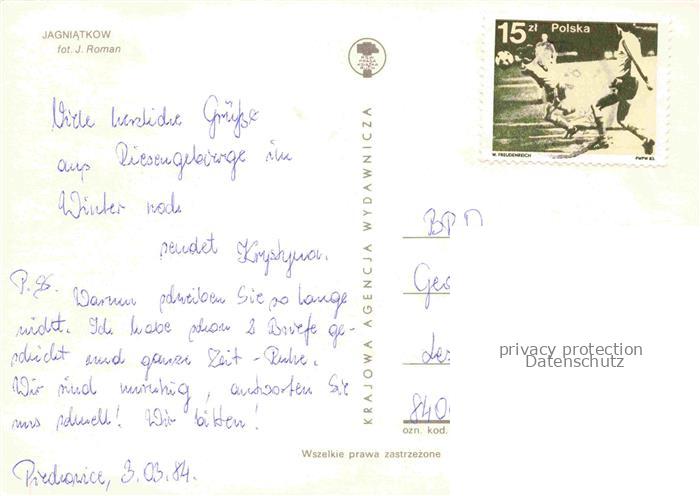 JAGNIĄTKOW
fot. J. Roman
RSW PRASA KSIĄŻKA RUCH
15 zł Polska
W. FREUDENREICH PWPW 83.
Viele herzliche Grüße
aus Riesengebirge im
Winter
sendet Krystyna.
P.S. Warum schreiben Sie so lange
nicht. Ich habe schon 2 Briefe ge-
schickt und ganze Zeit - Ruhe.
Wir sind unruhig, antworten Sie
uns schnell! Wir bitten!
3.03.84.
KRAJOWA AGENCJA WYDAWNICZA
840
ozn. kod.
Wszelkie prawa zastrzeżone
privacy protection
Datenschutz